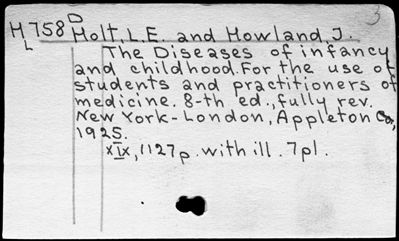 3
D
M 758 Holt, L.E. and Howland, J.
L
The Diseases of infancy
and childhood. For the use of
students and practitioners of
medicine. 8-th ed., fully rev.
New York-London, Appleton Co,
1925.
XIX, 1127p. with ill. 7pl.